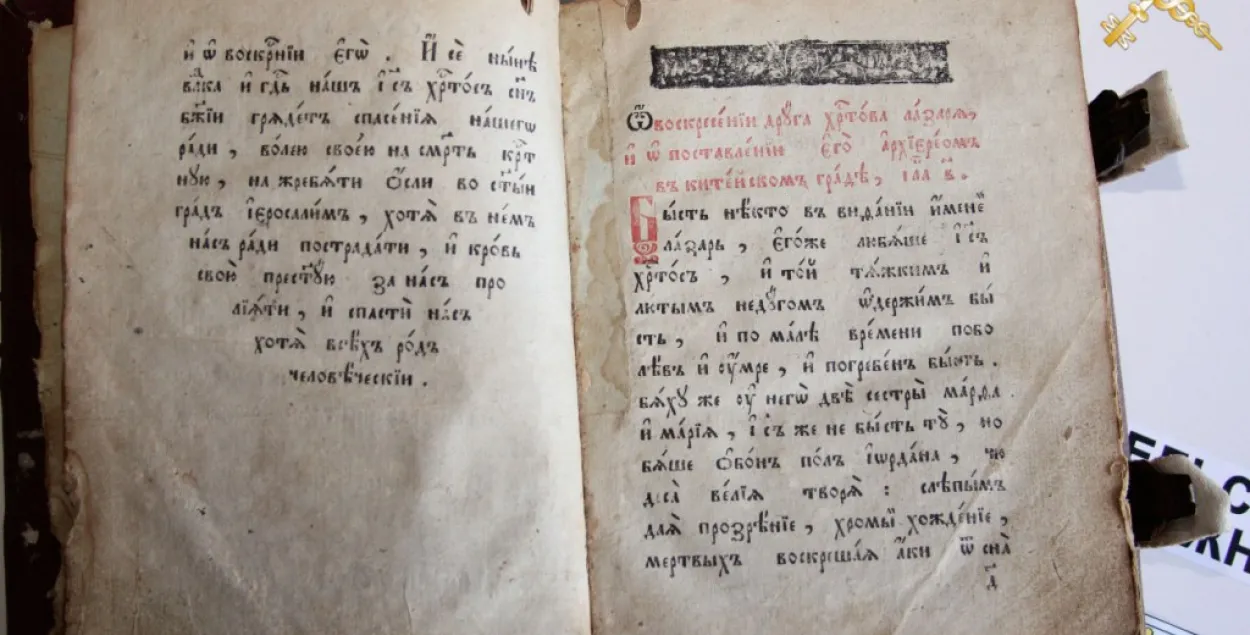 и҆ ѡ҆ воскр҃нїи є҆гѡ̀ . И҆ сѐ нн҃ѣ
вл҃ка и҆ гд҃ь на́шъ і҆с҃ъ хр҃то́съ сн҃ъ
бж҃їи гряде́тъ спасе́нїѧ на́шегѡ
ра́ди , во́лею свое́ю на см҃рть кр҃т
ную , на жребѧ́ти ѻ҆сли во ст҃ы́и
гра́дъ і҆єрослали́мъ , хотѧ̀ в не́мъ
на́съ ра́ди пострада́ти , и҆ кро́вь
свою̀ прест҃ую за на́съ про
лїѧ́ти , и҆ спастѝ на́съ
хотѧ̀ всѣ́хъ ро́дъ
человѣ́ческїи .
Ѡ҆ воскресе́нїи дру́га хр҃то́ва ла́заря ,
и҆ ѡ҆ поставле́нїи є҆го̀ а҆рхїєре́омъ
въ ките́йскомъ гра́дѣ , гл҃а в҃ .
Бы́сть нѣ́кто въ вида́нїи и҆мене́
ла́зарь , є҆го́же любѧ́ше і҆с҃ъ
хр҃то́съ , и҆ то́й тѧ́жкимъ и҆
лю́тымъ неду́гомъ ѡ҆держи́мъ бы́
сть , и҆ по ма́лѣ вре́мени побо
лѣ́въ и҆ ѹ҆́мре , и҆ погребе́нъ бы́сть .
бѧ́ху же ѹ҆ негѡ̀ двѣ̀ сестры̀ ма́рѳа
и҆ марі́ѧ , і҆с҃ъ же не бы́сть тꙋ̀ , но
бѧ́ше ѻ҆бо́нъ по́лъ і҆ѡрда́на , чю
деса̀ ве́лїѧ творѧ̀ : слѣпы́мъ
даѧ̀ прозрѣ́нїе , хромы́и хожде́нїе ,
ме́ртвыхъ воскреша́ѧ а҆́ки ѿ сна̀
д҃